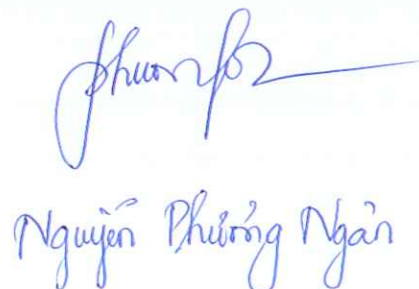 Nguyễn Phương Ngân